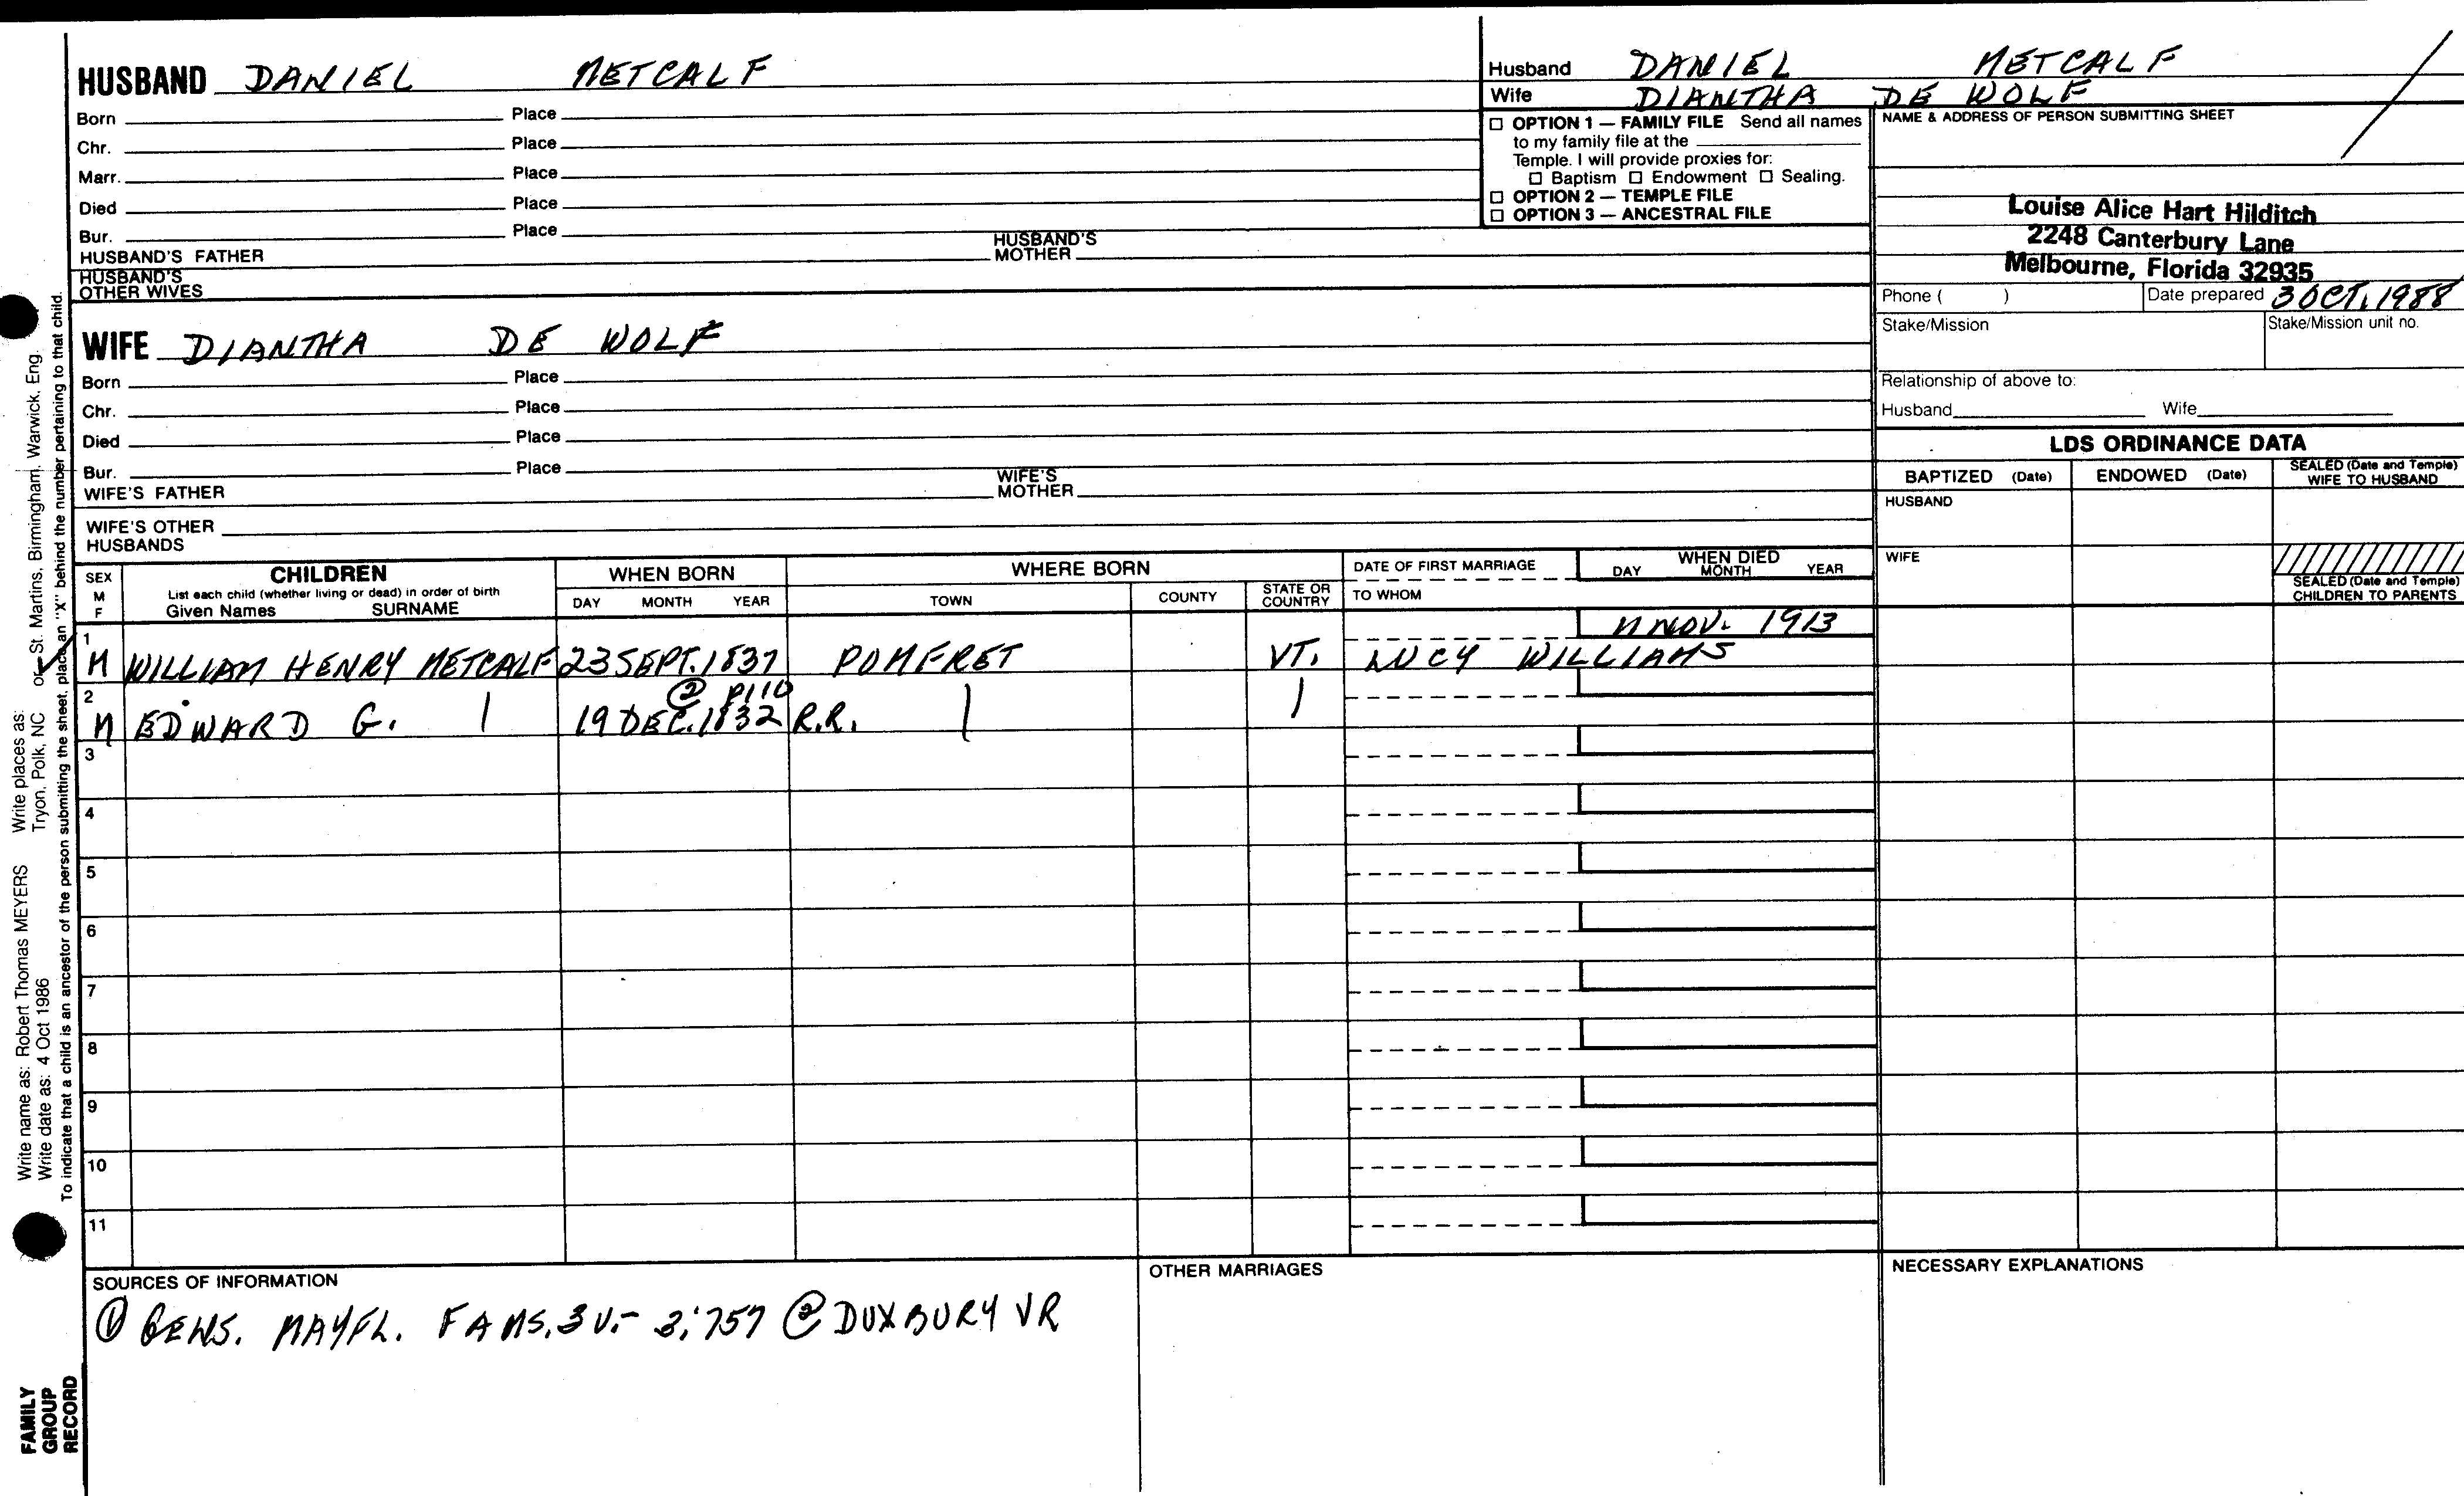 HUSBAND DANIEL METCALF
Born Place
Chr. Place
Marr. Place
Died Place
Bur. Place
HUSBAND'S FATHER HUSBAND'S MOTHER
HUSBAND'S OTHER WIVES
WIFE DIANTHA DE WOLF
Born Place
Chr. Place
Died Place
Bur. Place
WIFE'S FATHER WIFE'S MOTHER
WIFE'S OTHER HUSBANDS
Husband DANIEL METCALF
Wife DIANTHA DE WOLF
☐ OPTION 1 — FAMILY FILE Send all names
to my family file at the
Temple. I will provide proxies for:
☐ Baptism ☐ Endowment ☐ Sealing.
☐ OPTION 2 — TEMPLE FILE
☐ OPTION 3 — ANCESTRAL FILE
NAME & ADDRESS OF PERSON SUBMITTING SHEET
Louise Alice Hart Hilditch
2248 Canterbury Lane
Melbourne, Florida 32935
Phone ( ) Date prepared 3 OCT. 1988
Stake/Mission Stake/Mission unit no.
Relationship of above to:
Husband Wife
LDS ORDINANCE DATA
BAPTIZED (Date) ENDOWED (Date) SEALED (Date and Temple) WIFE TO HUSBAND
HUSBAND
WIFE
SEALED (Date and Temple)
CHILDREN TO PARENTS
SEX M F
CHILDREN
List each child (whether living or dead) in order of birth
Given Names SURNAME
WHEN BORN
DAY MONTH YEAR
WHERE BORN
TOWN COUNTY STATE OR COUNTRY
DATE OF FIRST MARRIAGE
TO WHOM
WHEN DIED
DAY MONTH YEAR
1 NOV. 1913
M WILLIAM HENRY METCALF 23 SEPT. 1837 POMFRET VT. LUCY WILLIAMS
2 ② P110
M EDWARD G. | 19 DEC. 1832 R.R. | |
3
4
5
6
7
8
9
10
11
SOURCES OF INFORMATION
① GENS. MAYFL. FAMS. 3 V.- 3:757 ② DUXBURY VR
OTHER MARRIAGES
NECESSARY EXPLANATIONS
Write name as: Robert Thomas MEYERS Write places as: or St. Martins, Birmingham, Warwick, Eng.
Write date as: 4 Oct 1986 Tryon, Polk, NC
To indicate that a child is an ancestor of the person submitting the sheet, place an "X" behind the number pertaining to that child.
FAMILY
GROUP
RECORD